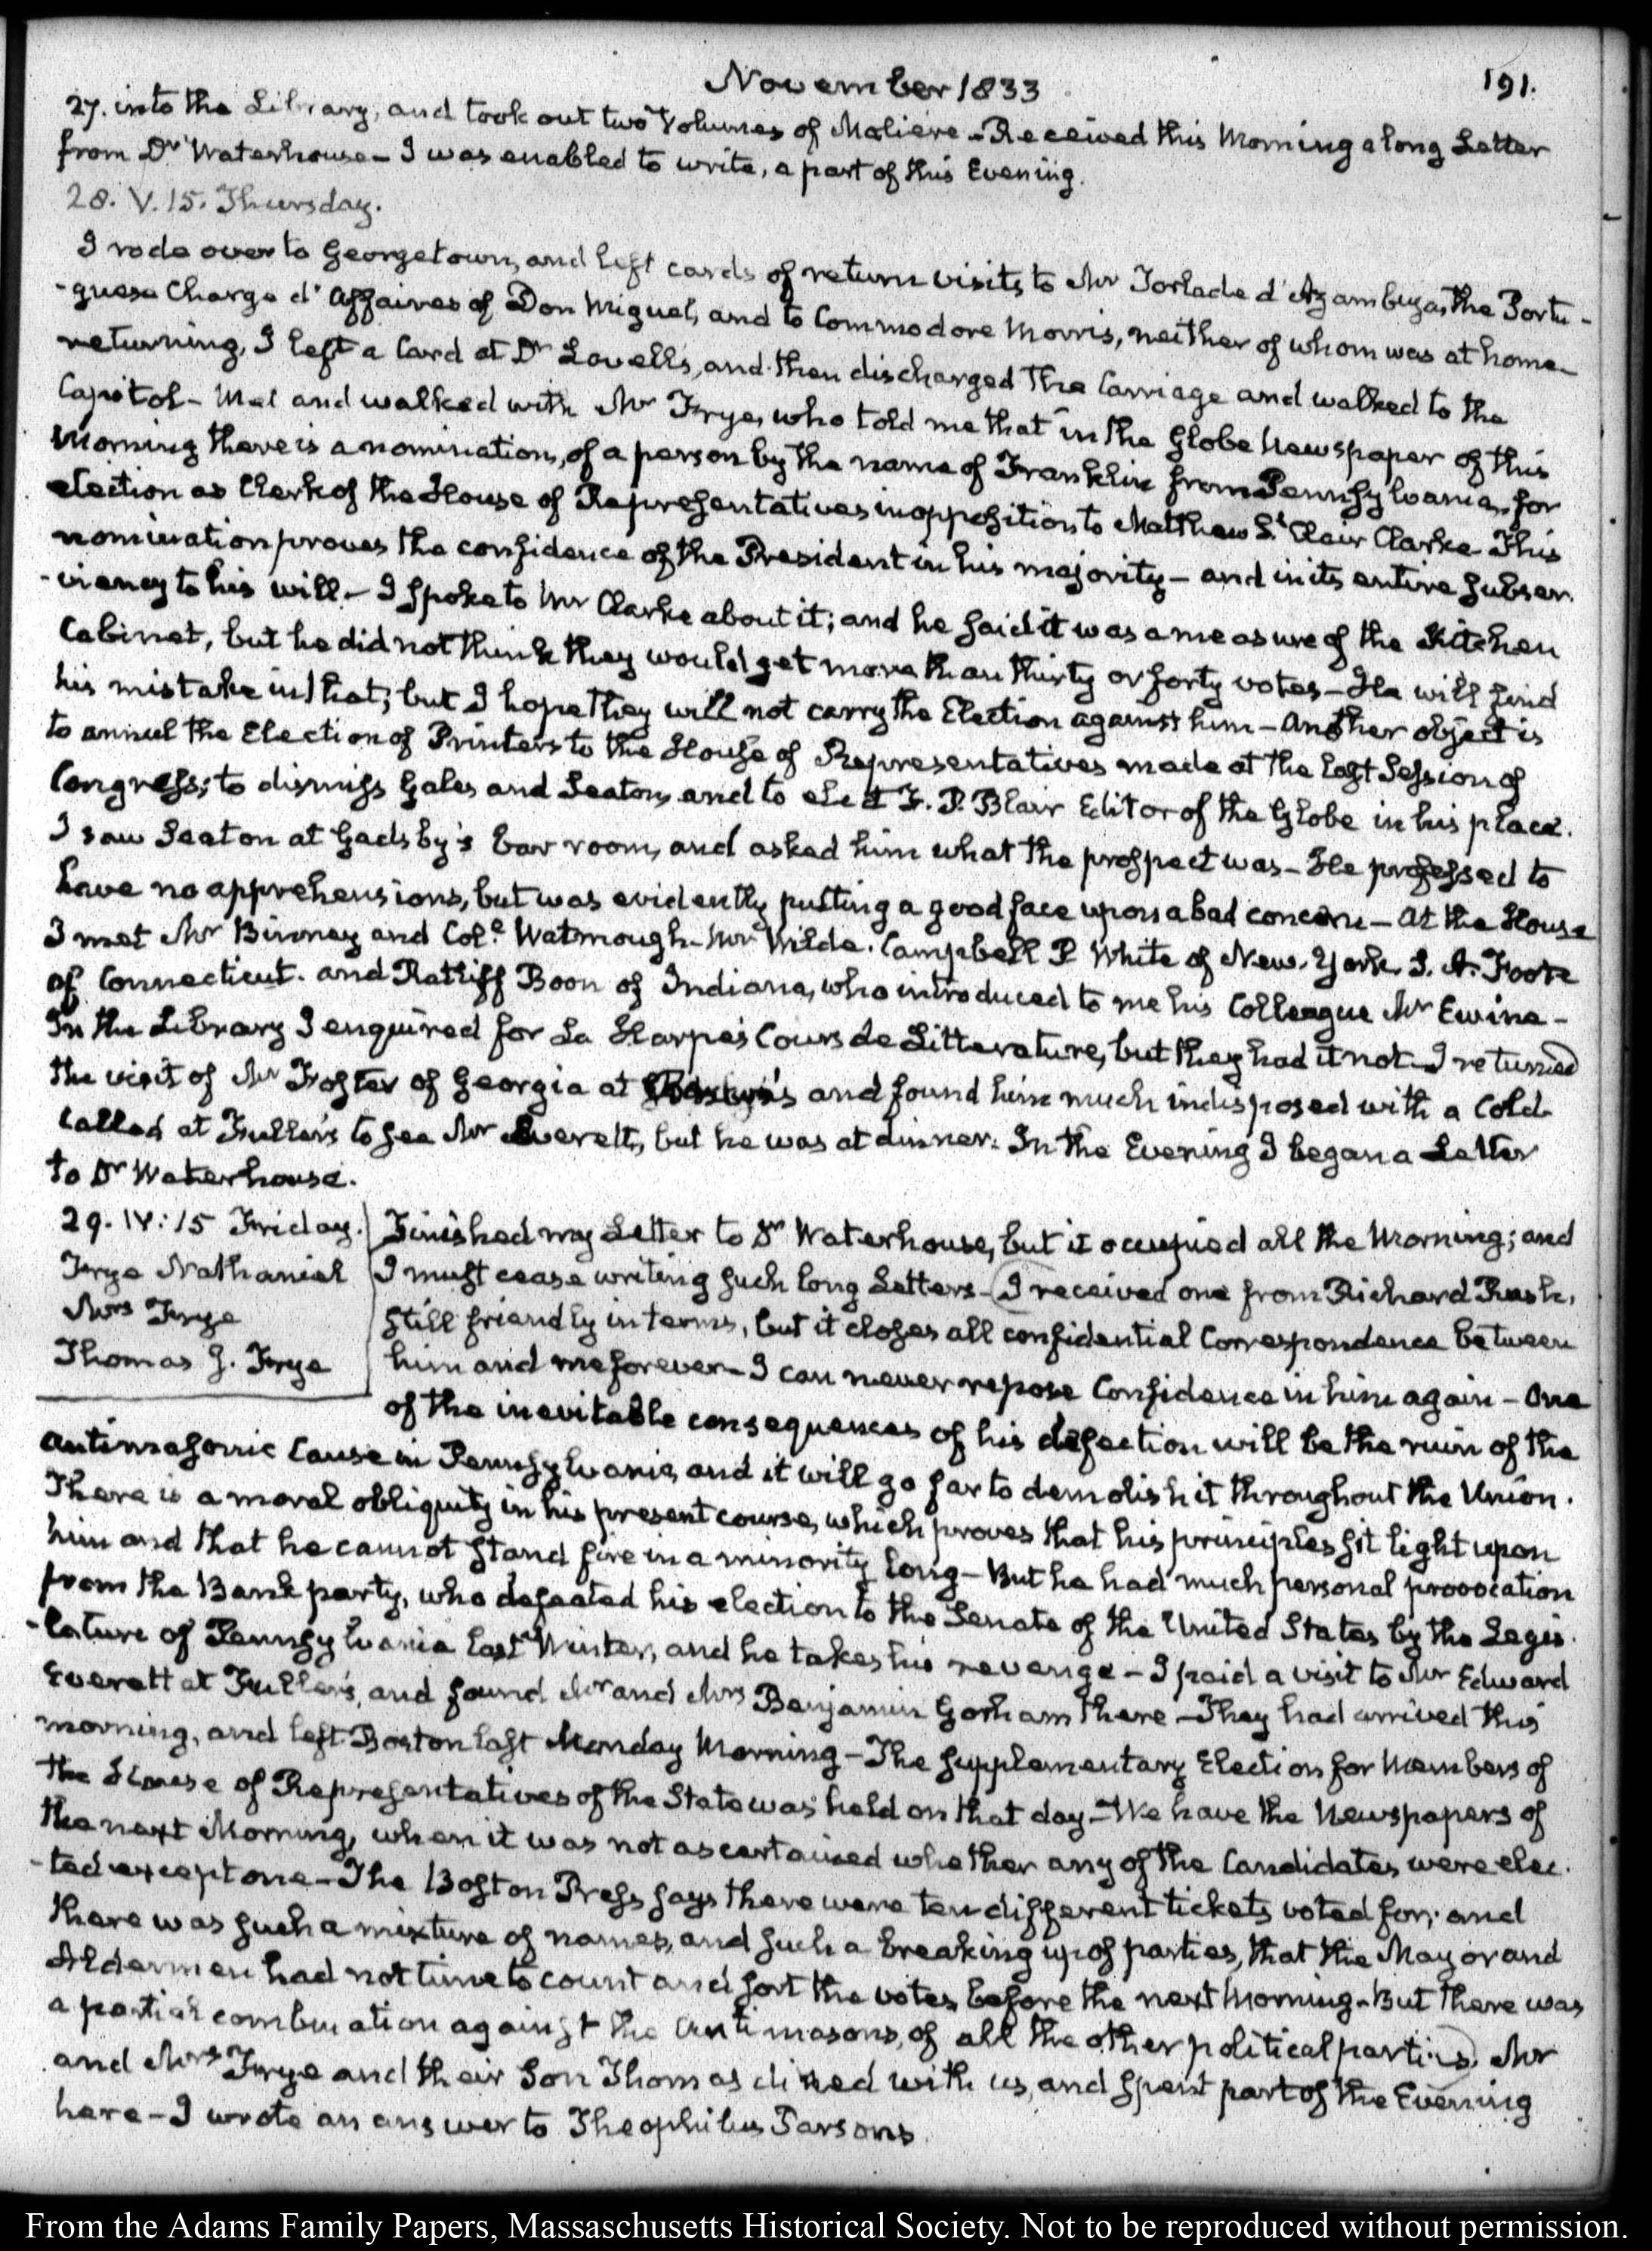 November 1833
191.
27. into the Library, and took out two Volumes of Moliere - Received this Morning a long Letter
from Dr. Waterhouse - I was enabled to write, a part of this Evening.
28. V.15. Thursday.
I rode over to Georgetown, and left cards of return visits to Mr Torlade d'Azambuja, the Portu-
-guese Charge d'Affaires of Don Miguel, and to Commodore Morris, neither of whom was at home-
returning, I left a Card at Dr Lovell's, and then discharged the Carriage and walked to the
Capitol - Met and walked with Mr Frye, who told me that in the Globe Newspaper of this
Morning there is a nomination, of a person by the name of Franklin from Pennsylvania, for
election as Clerk of the House of Representatives in opposition to Matthew St. Clair Clarke - This
nomination proves the confidence of the President in his majority - and in its entire subser-
-viency to his will - I spoke to Mr Clarke about it; and he said it was a measure of the Kitchen
Cabinet, but he did not think they would get more than thirty or forty votes - He will find
his mistake in that; but I hope they will not carry the Election against him - Another object is
to annul the Election of Printers to the House of Representatives made at the last Session of
Congress; to dismiss Gales and Seaton, and to elect F. P. Blair Editor of the Globe in his place.
I saw Seaton at Gadsby's bar room, and asked him what the prospect was - He professed to
have no apprehensions, but was evidently putting a good face upon a bad concern - At the House
I met Mr Binney and Col. Watmough - Mr Wilde. Campbell P. White of New-York, S. A. Foote
of Connecticut. and Ratliff Boon of Indiana, who introduced to me his Colleague Mr Ewing -
In the Library I enquired for La Harpe's Cours de Litterature, but they had it not - I returned
the visit of Mr Foster of Georgia at and found him much indisposed with a Cold-
Called at Fuller's to see Mr Everett, but he was at dinner. In the Evening I began a Letter
to Dr Waterhouse.
29. IV:15 Friday.
Frye Nathaniel
Mrs Frye
Thomas J. Frye
Finished my Letter to Dr Waterhouse, but it occupied all the Morning; and
I must cease writing such long Letters - I received one from Richard Rush,
still friendly in terms, but it closes all confidential Correspondence between
him and me forever - I can never repose Confidence in him again - One
of the inevitable consequences of his defection will be the ruin of the
Antimasonic Cause in Pennsylvania, and it will go far to demolish it throughout the Union.
There is a moral obliquity in his present course, which proves that his principles sit light upon
him and that he cannot stand fire in a minority long - But he had much personal provocation
from the Bank party, who defeated his election to the Senate of the United States by the Legis-
-lature of Pennsylvania last Winter, and he takes his revenge - I paid a visit to Mr Edward
Everett at Fuller's, and found Mr and Mrs Benjamin Gorham there - They had arrived this
morning, and left Boston last Monday Morning - The supplementary Election for Members of
the House of Representatives of the State was held on that day - We have the Newspapers of
the next Morning, when it was not ascertained whether any of the Candidates were elec-
-ted except one - The Boston Press says there were ten different tickets voted for; and
there was such a mixture of names, and such a breaking up of parties, that the Mayor and
Aldermen had not time to count and sort the votes before the next Morning - But there was
a partial combination against the Antimasons, of all the other political parties. Mr
and Mrs Frye and their Son Thomas dined with us, and spent part of the Evening
here - I wrote an answer to Theophilus Parsons
From the Adams Family Papers, Massachusetts Historical Society. Not to be reproduced without permission.